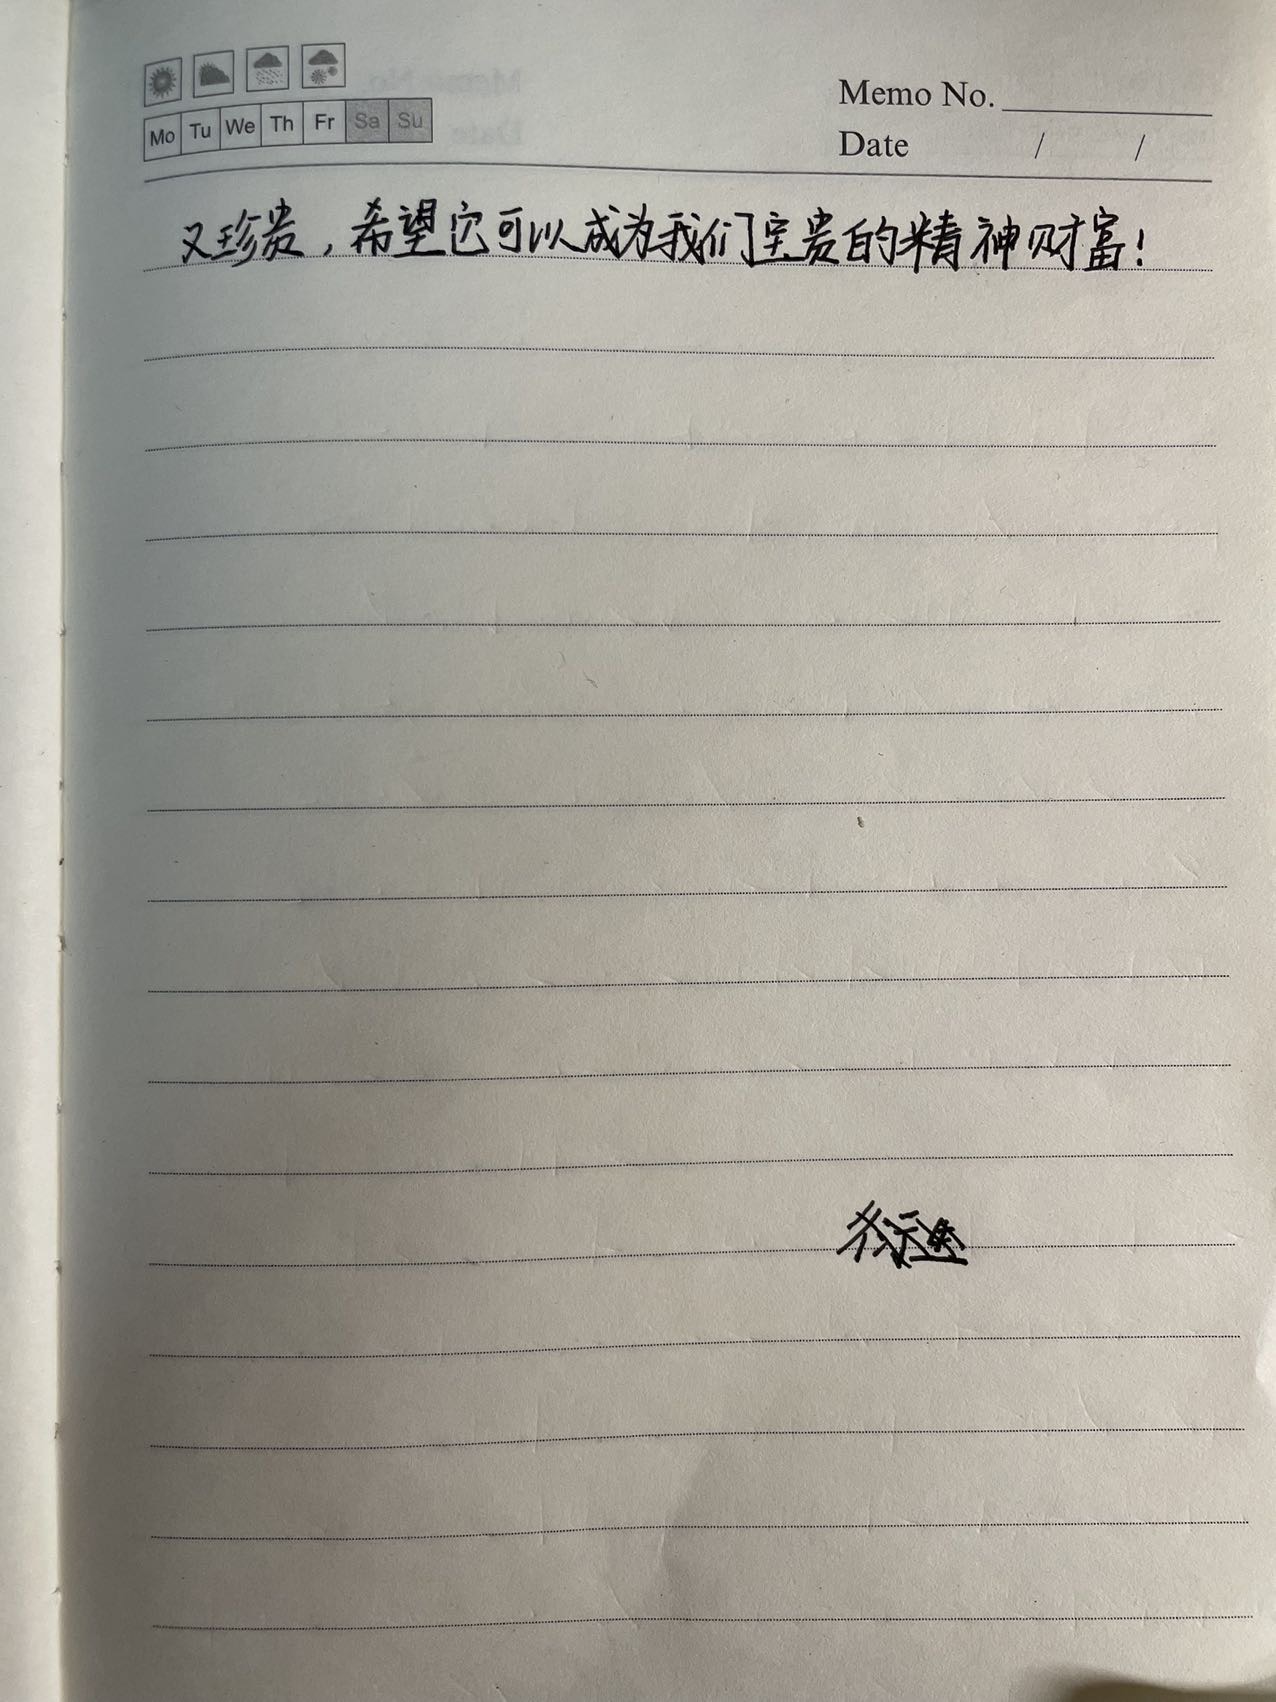 Memo No.
Mo Tu We Th Fr Sa Su
Date / /
又珍贵，希望它可以成为我们宝贵的精神财富！